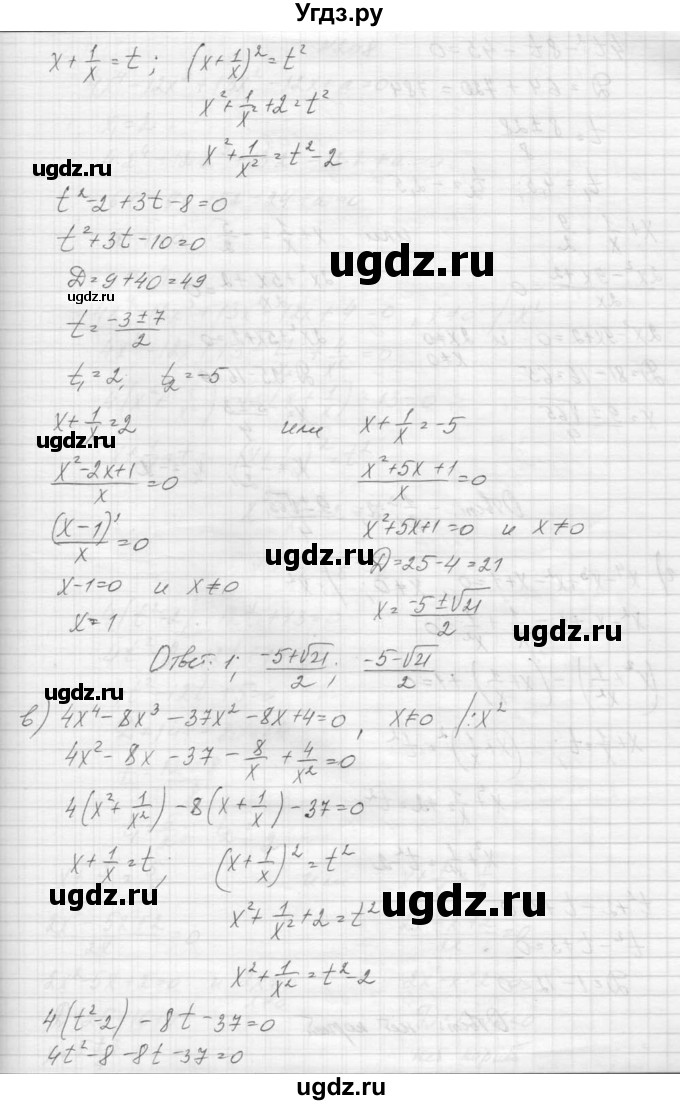 Угдз.ру
x + 1/x = t; (x + 1/x)² = t²
x² + 1/x² + 2 = t²
x² + 1/x² = t² - 2
ugdz.ru
t² - 2 + 3t - 8 = 0
t² + 3t - 10 = 0
ugdz.ru
Д = 9 + 40 = 49
ugdz.ru
t = (-3 ± 7)/2
t₁ = 2; t₂ = -5
x + 1/x = 2 или x + 1/x = -5
ugdz.ru
(x² - 2x + 1)/x = 0 (x² + 5x + 1)/x = 0
(x - 1)²/x = 0 x² + 5x + 1 = 0 и x ≠ 0
ugdz.ru
x - 1 = 0 и x ≠ 0 Д = 25 - 4 = 21
x = 1 x = (-5 ± √21)/2
ugdz.ru
Ответ: 1; (-5 + √21)/2; (-5 - √21)/2
ugdz.ru
в) 4x⁴ - 8x³ - 37x² - 8x + 4 = 0, x ≠ 0 /: x²
4x² - 8x - 37 - 8/x + 4/x² = 0
4(x² + 1/x²) - 8(x + 1/x) - 37 = 0
x + 1/x = t; (x + 1/x)² = t²
ugdz.ru
ugdz.ru
x² + 1/x² + 2 = t²
x² + 1/x² = t² - 2
4(t² - 2) - 8t - 37 = 0
4t² - 8 - 8t - 37 = 0
ugdz.ru
ugdz.ru